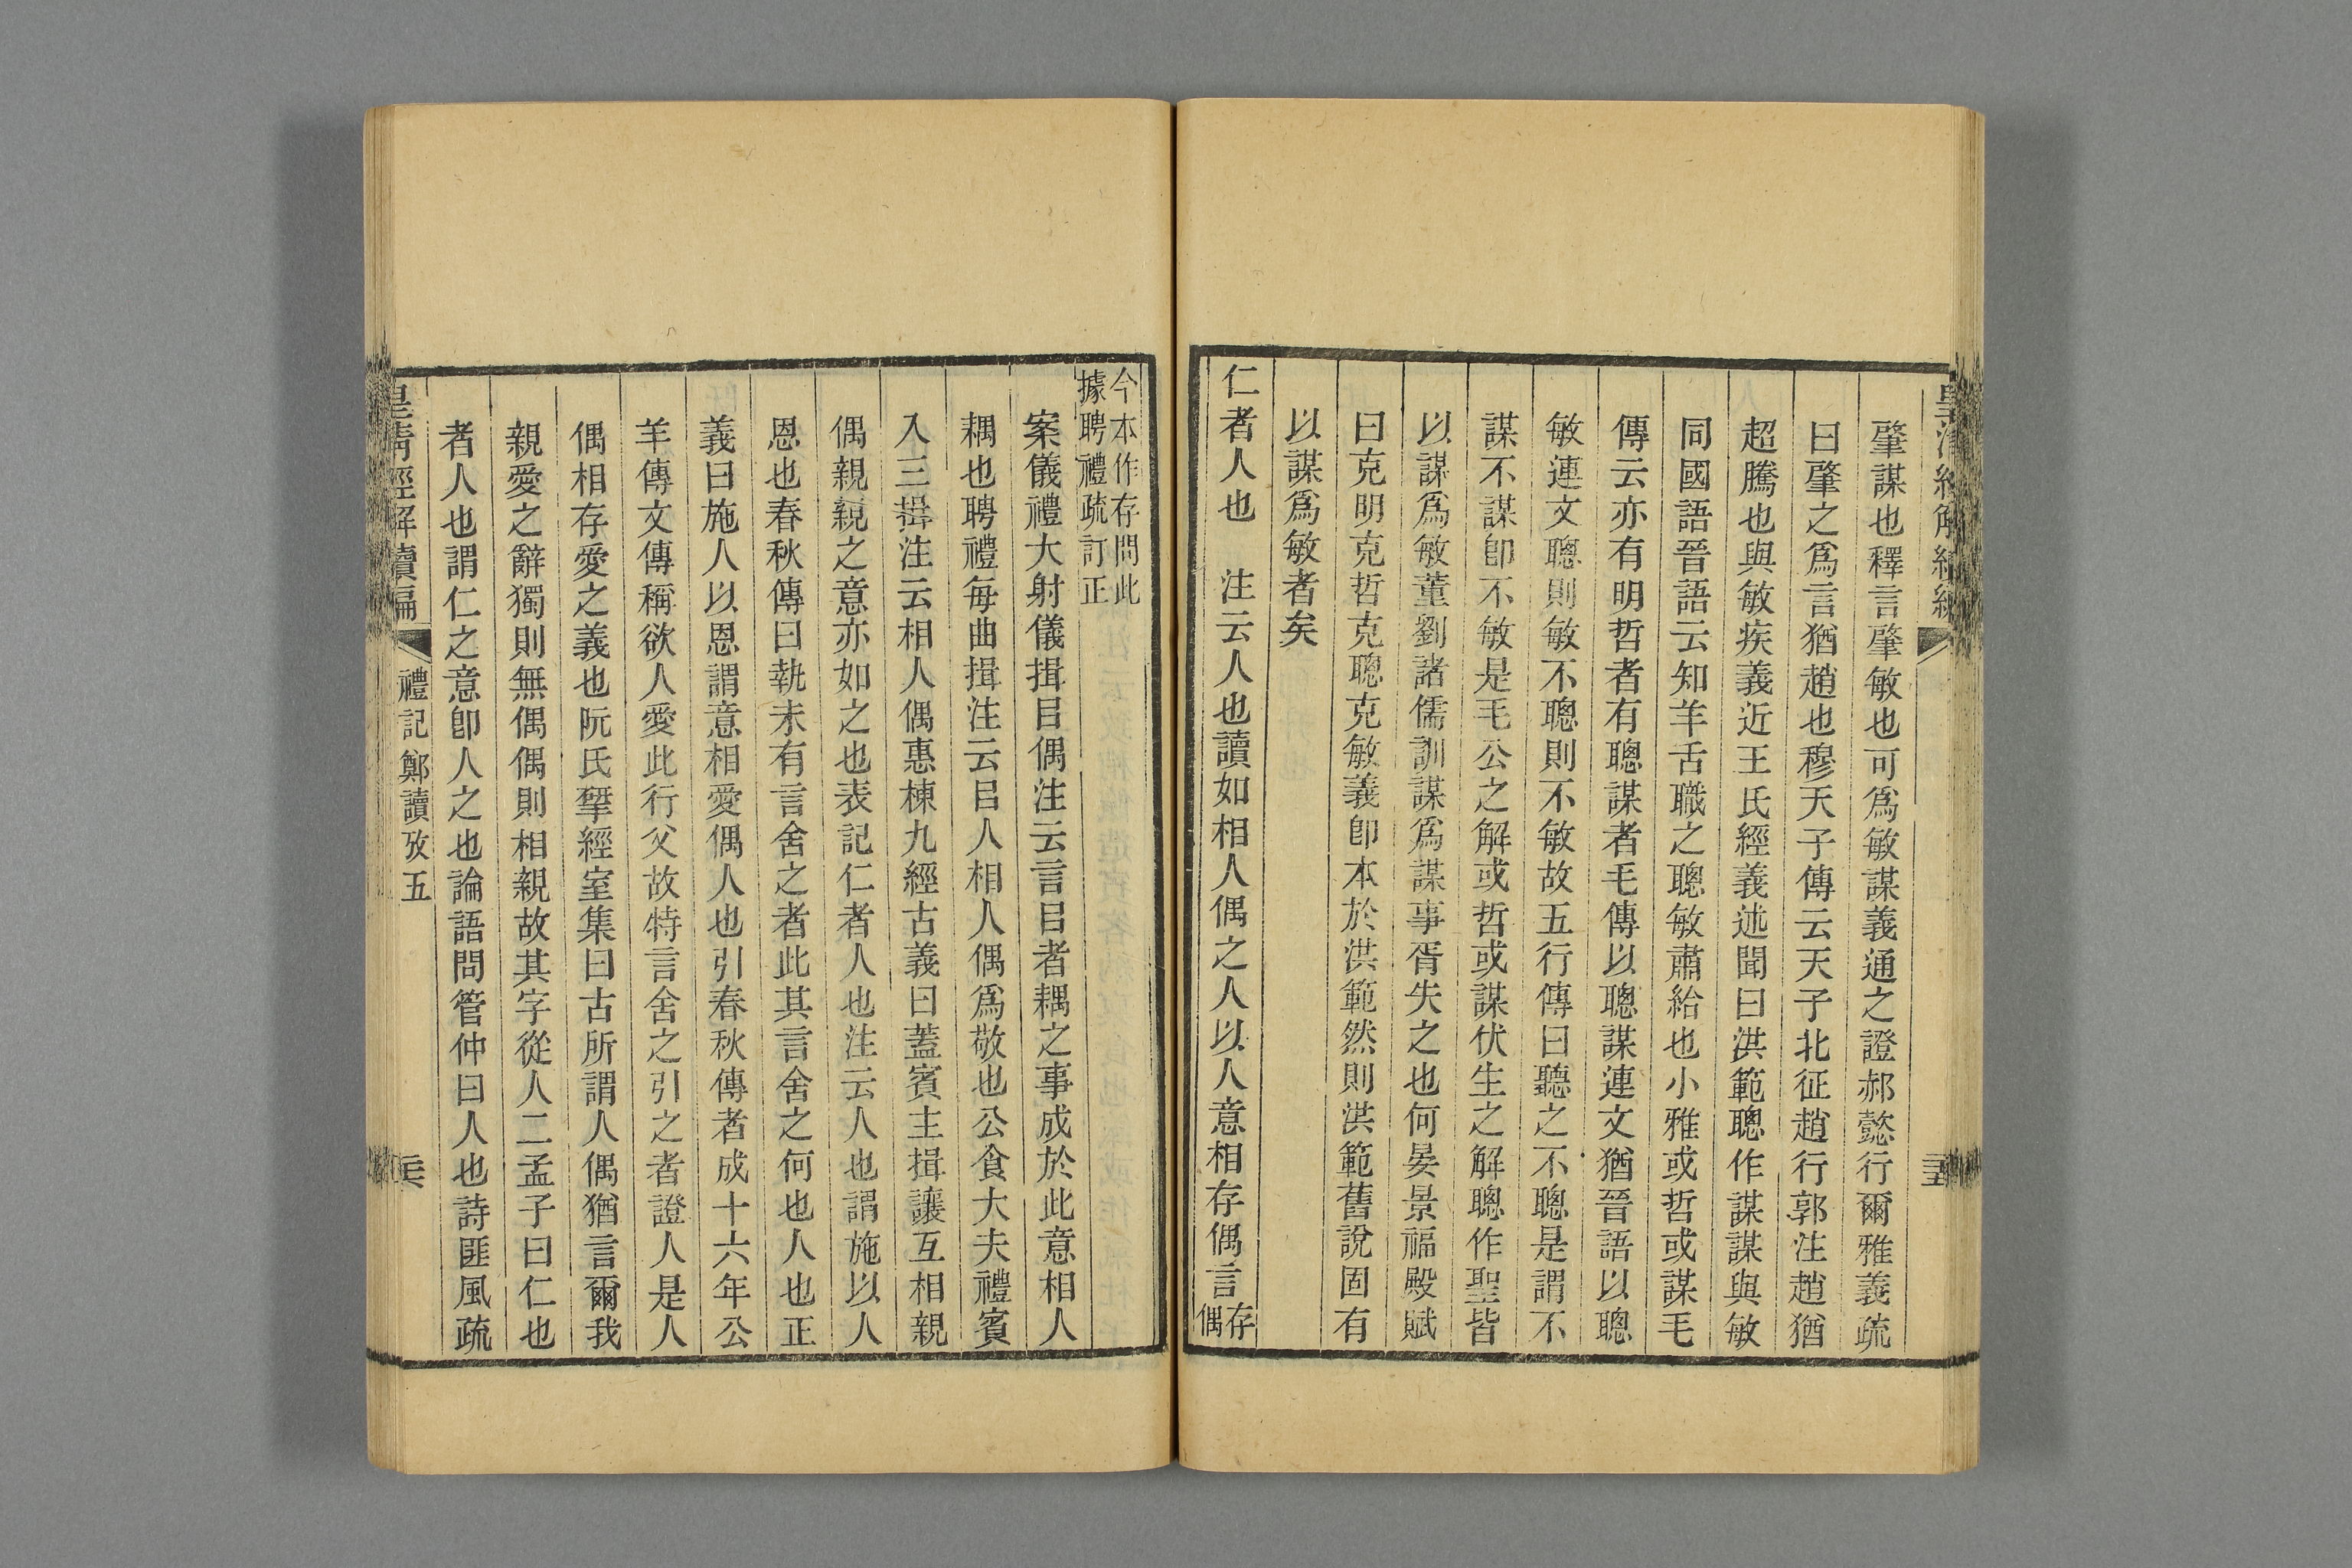 肇謀也釋言肇敏也可爲敏謀義通之證郝懿行爾雅義疏
曰肇之爲言猶趙也穆天子傳云天子北征趙行郭注趙猶
超騰也與敏疾義近王氏經義述聞曰洪範聰作謀謀與敏
同國語晉語云知羊舌職之聰敏肅給也小雅或哲或謀毛
傳云亦有明哲者有聰謀者毛傳以聰謀連文猶晉語以聰
敏連文聰則敏不聰則不敏故五行傳曰聽之不聰是謂不
謀不謀卽不敏是毛公之解或哲或謀伏生之解聰作聖皆
以謀爲敏董劉諸儒訓謀爲謀事胥失之也何晏景福殿賦
曰克明克哲克聰克敏義卽本於洪範然則洪範舊說固有
以謀爲敏者矣
仁者人也 注云人也讀如相人偶之人以人意相存偶言存偶
今本作存問此
據聘禮疏訂正
案儀禮大射儀揖㠯偶注云言㠯者耦之事成於此意相人
耦也聘禮每曲揖注云㠯人相人偶爲敬也公食大夫禮賓
入三揖注云相人偶惠棟九經古義曰蓋賓主揖讓互相親
偶親親之意亦如之也表記仁者人也注云人也謂施以人
恩也春秋傳曰執未有言舍之者此其言舍之何也人也正
義曰施人以恩謂意相愛偶人也引春秋傳者成十六年公
羊傳文傳稱欲人愛此行父故特言舍之引之者證人是人
偶相存愛之義也阮氏揅經室集曰古所謂人偶猶言爾我
親愛之辭獨則無偶偶則相親故其字從人二孟子曰仁也
者人也謂仁之意卽人之也論語問管仲曰人也詩匪風疏
皇清經解續編 禮記鄭讀攷五